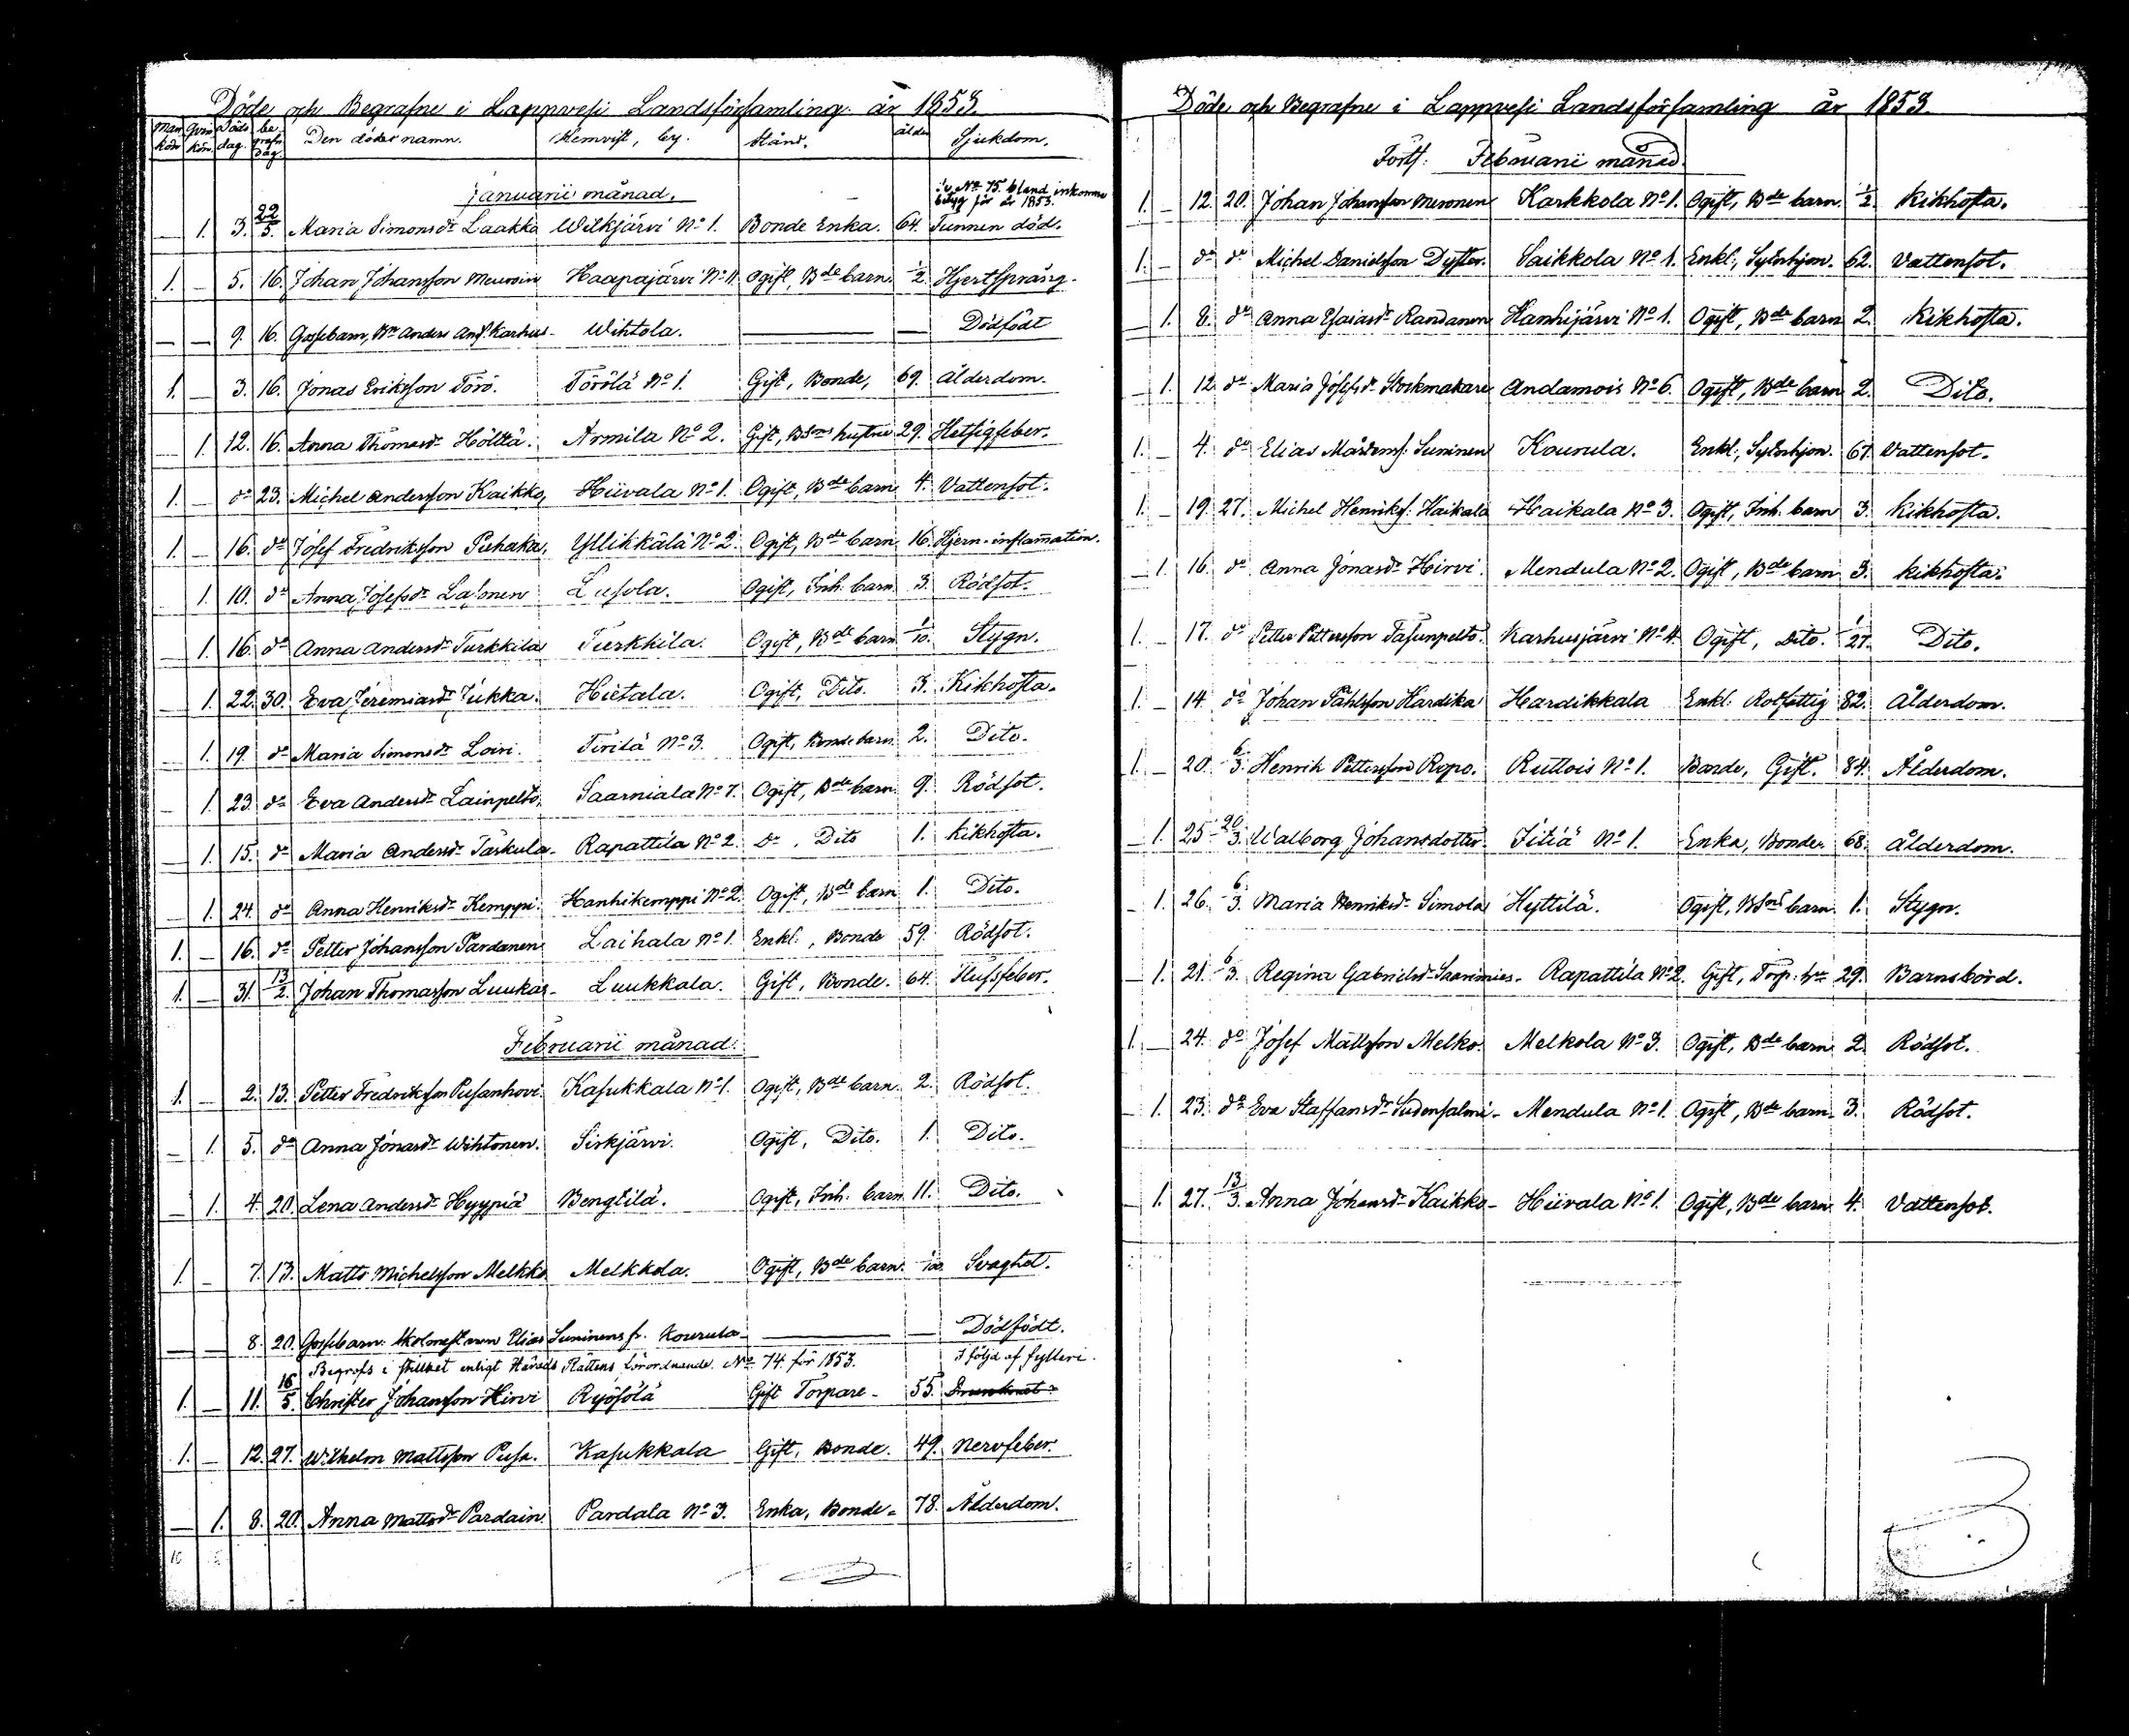 Döde och Begrafne i Lappvesi Landsförsamling år 1853.
Man kön Qvin kön Döds dag. be grafn dag. Den dödes namn. Hemvist, by. Stånd. ålder Sjukdom.
Januarii månad.
No 75 bland inkomne betyg för år 1853.
— 1. 3. 22/5. Maria Simonsdr Laakka Wilkjärvi No 1. Bonde Enka. 64. Funnen död.
1. — 5. 16. Johan Johansson Meuroin Haapajärvi No 11 Ogift, Bde barn. 1/2 Hjertsprång.
— — 9. 16. Gossebarn, Bn Anders And. Karhus Wihtola. — — Dödfödt
1. — 3. 16. Jonas Eriksson Törö. Törölä No 1. Gift, Bonde, 69. Ålderdom.
— 1. 12. 16. Anna Thomasdr Hölttä. Armila No 2. Gift, Bsons hustru 29. Hetsigfeber.
1. — do 23. Michel Andersson Kaikko, Hiivala No 1. Ogift, Bde barn 4. Vattensot.
1. — 16. do Josef Fredriksson Puhaka. Yllikkälä No 2. Ogift, Bde barn 16. Hjern-inflamation.
1. 10. do Anna Josefsdr Lasonen Lusola. Ogift, Inh. barn. 3. Rödsot.
— 1. 16. do Anna Andersdr Turkkila Turkkila. Ogift, Bde barn 1/10. Stygn.
— 1. 22. 30. Eva Jeremiasdr Jukka. Hietala. Ogift, Dito. 3. Kikhosta.
— 1. 19. do Maria Simonsdr Loiri. Tirilä No 3. Ogift, Bonde barn. 2. Dito.
— 1. 23. do Eva Andersdr Lainpelto. Saarniala No 7. Ogift, Bde barn. 9. Rödsot.
— 1. 15. do Maria Andersdr Taskula Rapattila No 2. Do. Dito 1. Kikhosta.
— 1. 24. do Anna Henriksdr Kemppi. Hanhikemppi No 2. Ogift, Bde barn 1. Dito.
1. — 16. do Petter Johansson Pardanen Laihala No 1. Enkl., Bonde 59. Rödsot.
1. — 31. 13/2. Johan Thomasson Luukas Luukkala. Gift, Bonde. 64. Flussfeber.
Februarii månad.
1. — 2. 13. Petter Fredriksson Pusanhovi. Kasukkala No 1. Ogift, Bde barn. 2. Rödsot.
— 1. 5. do Anna Jonasdr Wihtonen. Sirkjärvi. Ogift, Dito. 1. Dito.
— 1. 4. 20. Lena Andersdr Hyypiä Bengtilä. Ogift, Inh. barn 11. Dito.
1. — 7. 13. Matts Michelsson Melkko Melkkola. Ogift, Bde barn. Svaghet.
— — 8. 20. Gossebarn. Skolmästaren Elias Suninens fr. Kourula — — Dödfödt.
Begrofs i stillhet enligt Härads Rättens förordnande. No 74 för 1853. I följd af fylleri.
1. — 11. 16/5. Christer Johansson Hirvi Ryösölä Gift Torpare 55.
1. — 12. 27. Wilhelm Mattsson Pusa. Kasukkala Gift, Bonde. 49. Nervfeber.
— 1. 8. 20. Anna Mattsdr Pardain. Pardala No 3. Enka, Bonde 78. Ålderdom.
Döde och Begrafne i Lappvesi Landsförsamling år 1853.
Forts: Februarii månad.
1. — 12. 20. Johan Johansson Muronen Karkkola No 1. Ogift, Bde barn. 1/2. Kikhosta.
1. — do do Michel Danielsson Dyster. Saikkola No 1. Enkl., Sytnhjon. 62. Vattensot.
— 1. 8. do Anna Esaiasdr Randanen Hanhijärvi No 1. Ogift, Bde barn 2. Kikhosta.
— 1. 12. do Maria Josefsdr Stockmakare Andamois No 6. Ogift, Bde barn 2. Dito.
1. — 4. do Elias Mårtenss. Suninen Kourula. Enkl., Sytnhjon. 67. Vattensot.
1. — 19. 27. Michel Henrikss. Haikala Haikala No 3. Ogift, Inh. barn 3. Kikhosta.
— 1. 16. do Anna Jonasdr Hirvi. Mendula No 2. Ogift, Bde barn 3. Kikhosta.
1. — 17. do Petter Pettersson Tasunpelto. Karhusjärvi No 4. Ogift, Dito. Dito.
1. — 14. do Johan Påhlsson Hardika Hardikkala Enkl. Rotfattig 82. Ålderdom.
1. — 20. 6/3. Henrik Pettersson Ropo. Ruttois No 1. Bonde, Gift. 84. Ålderdom.
— 1. 25. 20/3. Walborg Johansdotter. Iitiä No 1. Enka, Bonde 68. Ålderdom.
— 1. 26. 6/3. Maria Henriksdr Simola Hyttilä. Ogift, Bsons barn. 1. Stygn.
— 1. 21. 6/3. Regina Gabrielsdr Saxnimies Rapattila No 2. Gift, Torp. hu 29. Barnsbörd.
1. — 24. do Josef Mattsson Melko. Melkola No 3. Ogift, Bde barn 2. Rödsot.
— 1. 23. do Eva Staffansdr Sudensalmi Mendula No 1. Ogift, Bde barn 3. Rödsot.
— 1. 27. 13/3. Anna Johansdr Kaikko Hiivala No 1. Ogift, Bde barn 4. Vattensot.